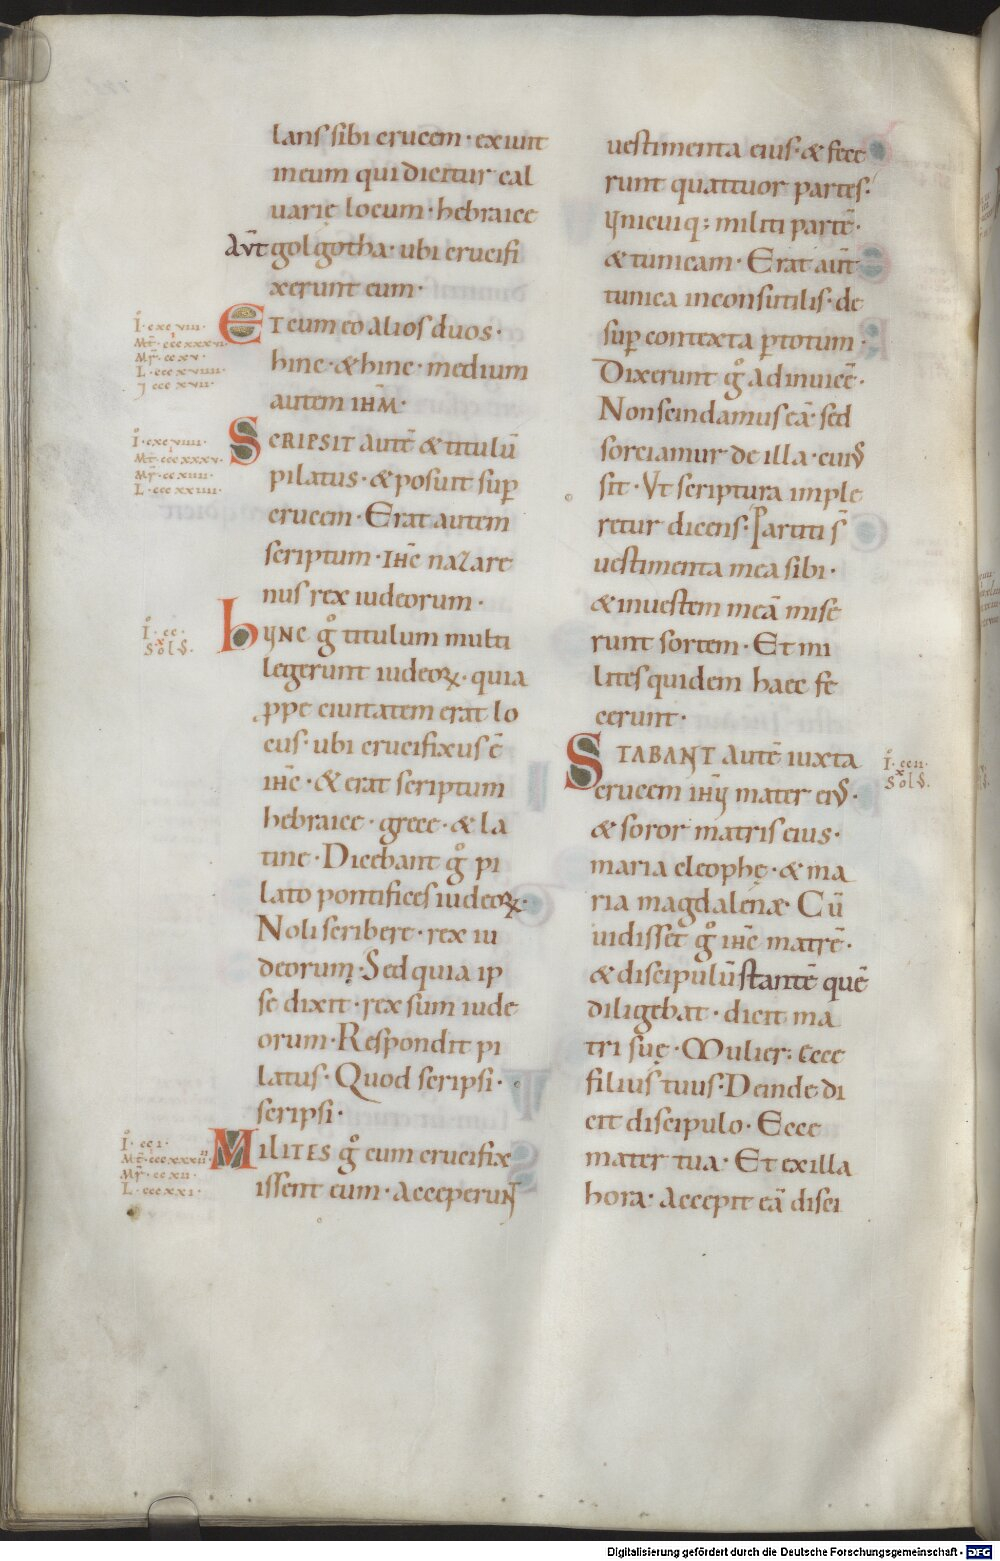 lans sibi crucem · exiuit
in eum qui dicitur cal
uarię locum · hebraice
aūt golgotha · ubi crucifi
xerunt eum ·
Et cum eo alios duos ·
hinc · & hinc · medium
autem ihm̄ ·
I · cxcviii ·
Mt̄ · cccxxxvi
Mr̄ · ccxv ·
L · cccxviiii
j cccxvii ·
Scripsit autē & titulū
pilatus · & posuit sup̄
crucem · Erat autem
scriptum · ihc̄ nazare
nus rex iudeorum ·
I · cxcviiii ·
Mt̄ · cccxxxv ·
Mr̄ · ccxiiii ·
L · cccxxiiii ·
hỿnc gͦ titulum multi
legerunt iudeoꝝ · quia
ꝓpe ciuitatem erat lo
cus · ubi crucifixus ē
ihc̄ · & erat scriptum
hebraice · grece · & la
tine · Dicebant gͦ pi
lato pontifices iudeoꝝ ·
Noli scribere · rex iu
deorum · Sed quia ip
se dixit · rex sum iude
orum · Respondit pi
latus · Quod scripsi ·
scripsi ·
I · cc ·
Milites gͦ cum crucifix
issent eum · acceperunt
I · cci ·
Mt̄ · cccxxxii
Mr̄ · ccxii ·
L · cccxxi ·
uestimenta eius · & fece
runt quattuor partes ·
ỿnicuiq; militi partē ·
& tunicam · Erat aūt
tunica inconsutilis · de
sup̄ contexta ꝑtotum ·
Dixerunt gͦ adinuicē ·
Non scindamus eā · sed
sorciamur de illa · cuius
sit · Ut scriptura imple
retur dicens · Partiti s̄
uestimenta mea sibi ·
& in uestem meā mise
runt sortem · Et mi
lites quidem haec fe
cerunt ·
Stabant autē iuxta
crucem ihỿ mater eius ·
& soror matris eius ·
maria cleophę · & ma
ria magdalenæ Cū
uidisset gͦ ihc̄ matrē ·
& discipulū stantē quē
diligebat · dicit ma
tri suę · Mulier : ecce
filius tuus · Deinde di
cit discipulo · Ecce
mater tua · Et ex illa
hora · accepit eā disci
I · ccii ·
Digitalisierung gefördert durch die Deutsche Forschungsgemeinschaft · DFG